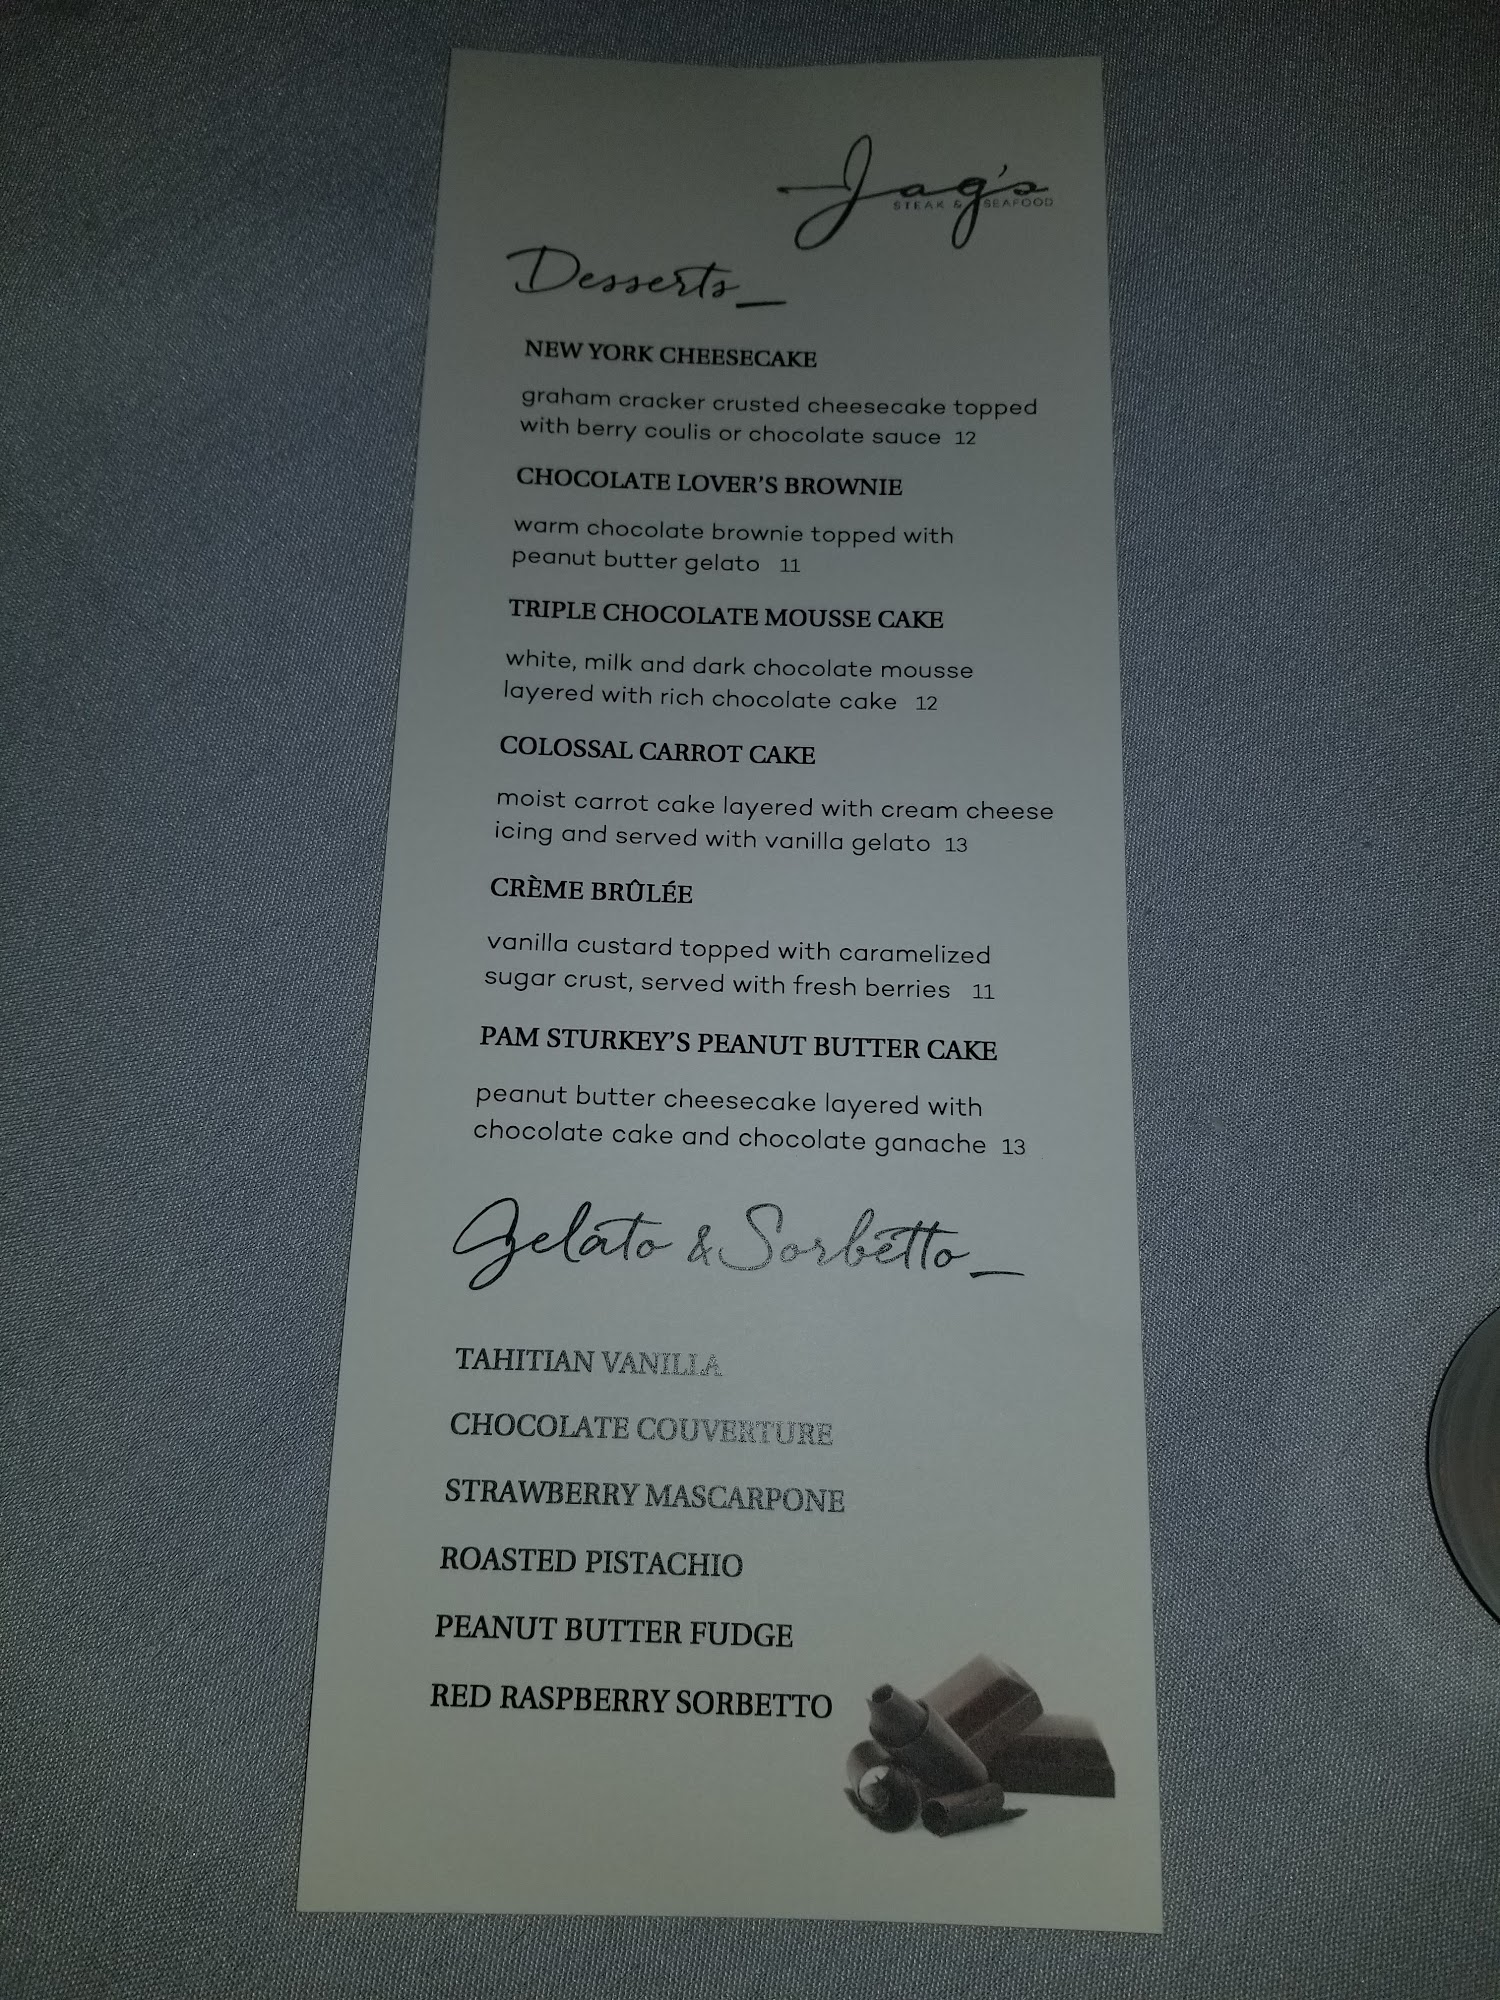 Jag's
STEAK & SEAFOOD
Desserts_
NEW YORK CHEESECAKE
graham cracker crusted cheesecake topped
with berry coulis or chocolate sauce 12
CHOCOLATE LOVER'S BROWNIE
warm chocolate brownie topped with
peanut butter gelato 11
TRIPLE CHOCOLATE MOUSSE CAKE
white, milk and dark chocolate mousse
layered with rich chocolate cake 12
COLOSSAL CARROT CAKE
moist carrot cake layered with cream cheese
icing and served with vanilla gelato 13
CRÈME BRÛLÉE
vanilla custard topped with caramelized
sugar crust, served with fresh berries 11
PAM STURKEY'S PEANUT BUTTER CAKE
peanut butter cheesecake layered with
chocolate cake and chocolate ganache 13
Gelato & Sorbetto_
TAHITIAN VANILLA
CHOCOLATE COUVERTURE
STRAWBERRY MASCARPONE
ROASTED PISTACHIO
PEANUT BUTTER FUDGE
RED RASPBERRY SORBETTO